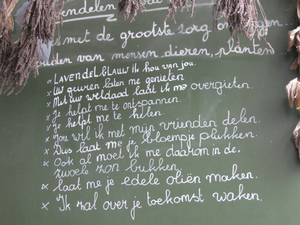 met de grootste zorg
ouden van mensen, dieren, planten
"LAVENDELBLAUW ik hou van jou.
x Uw geuren laten me genieten
x Met uw weldaad laat ik me overgieten.
x Je helpt me te ontspannen.
x Je helpt me te helen.
x Jou wil ik met mijn vrienden delen.
x Dus laat me je bloempje plukken.
x Ook al moet ik me daarom in de
zwoele zon bukken.
x Laat me je edele oliën maken.
x "Ik zal over je toekomst waken.